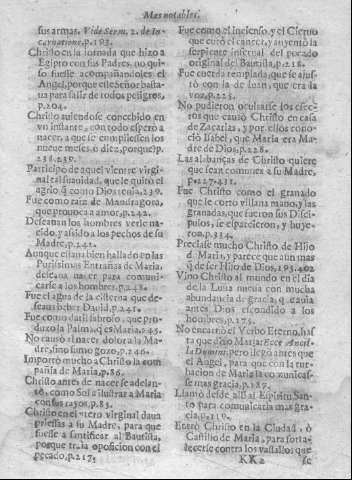 Mas notables.
sus armas. Vide Serm. 2. de In-
carnatione, p. 193.
Christo en la jornada que hizo a
Egipto con sus Padres, no qui-
so fuesse acompañandoles el
Angel, porque este Señor basta-
ua para salir de todos peligros,
p. 204.
Christo auiendose concebido en
vn instante, con todo espero a
nacer, a que se cumpliessen los
nueue meses, ò diez, porquè? p.
238. 239.
Participò de aquel vientre virgi-
nal tal suauidad, que le quitò el
agrio, q̃ como Dios tenia, 239.
Fue como raiz de Mandragora,
que prouoca a amor, p. 242.
Deseauan los hombres verle na-
cido, y asido a los pechos de su
Madre, p. 242.
Aunque estaua bien hallado en las
Purissimas Entrañas de Maria,
deseaua nacer para comuni-
carse a los hombres, p. 242.
Fue el agua de la cisterna que de-
seaua beber Dauid, p. 245.
Fue como datil sabroso, que pro-
duxo la Palma, q̃ es Maria, 245.
No causò al nacer dolor a la Ma-
dre, sino sumo gozo, p. 246.
Importò mucho a Christo la com-
pañia de Maria, p. 86.
Christo antes de nacer se adelan-
tò, como Sol a ilustrar a Maria
con sus rayos, p. 83.
Christo en el vientre virginal daua
priessas a su Madre, para que
fuesse a santificar al Bautista,
porque traìa oposicion con el
pecado, p. 217.
Fue como el Incienso, y el Cieruo
que curò el cancer, y auyentò la
serpiente infernal del pecado
original del Bautista, p. 218.
Fue cuerda templada, que se ajus-
tò con la de Iuan, que era la
voz, p. 223.
No pudieron ocultarse los efec-
tos que causò Christo en casa
de Zacarias, y por ellos cono-
ciò Isabel, que Maria era Ma-
dre de Dios, p. 228.
Las alabanças de Christo quiere
que sean comunes a su Madre,
p. 227. 431.
Fue Christo como el granado
que le corta villana mano, y las
granadas, que fueron sus Disci-
pulos, se esparcieron, y huye-
ron. p. 334.
Preciase mucho Christo de Hijo
d Maria, y parece que aun mas
q̃ de ser Hijo de Dios, 193. 402
Vino Christo al mundo en el dia
de la Luna nueua con mucha
abundancia de gracia, q̃ estaua
antes Dios escondido a los
hombres, p. 175.
No encarnò el Verbo Eterno, has-
ta que dixo Maria: Ecce Ancil-
la Domini, pero llegò antes que
el Angel, para que con la tur-
bacion de Maria la comunicas-
se mas gracia, p. 187.
Llamò desde allì al Espiritu San-
to para comunicarla mas gra-
cia, p. 310.
Entrò Christo en la Ciudad, ò
Castillo de Maria, para forta-
lecerse contra los vassallos que
KK2 se